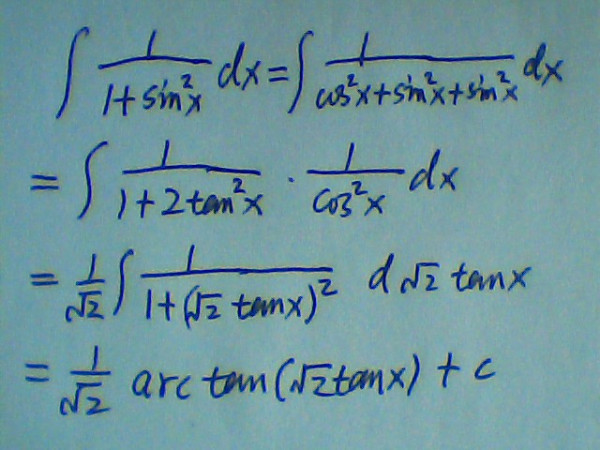 ∫ 1/(1+sin²x) dx = ∫ 1/(cos²x+sin²x+sin²x) dx
= ∫ 1/(1+2tan²x) · 1/(cos²x) dx
= 1/√2 ∫ 1/(1+(√2 tanx)²) d√2 tanx
= 1/√2 arc tan(√2tanx) + c